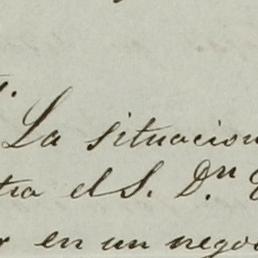 La situacion
el S. Dⁿ
en un nego